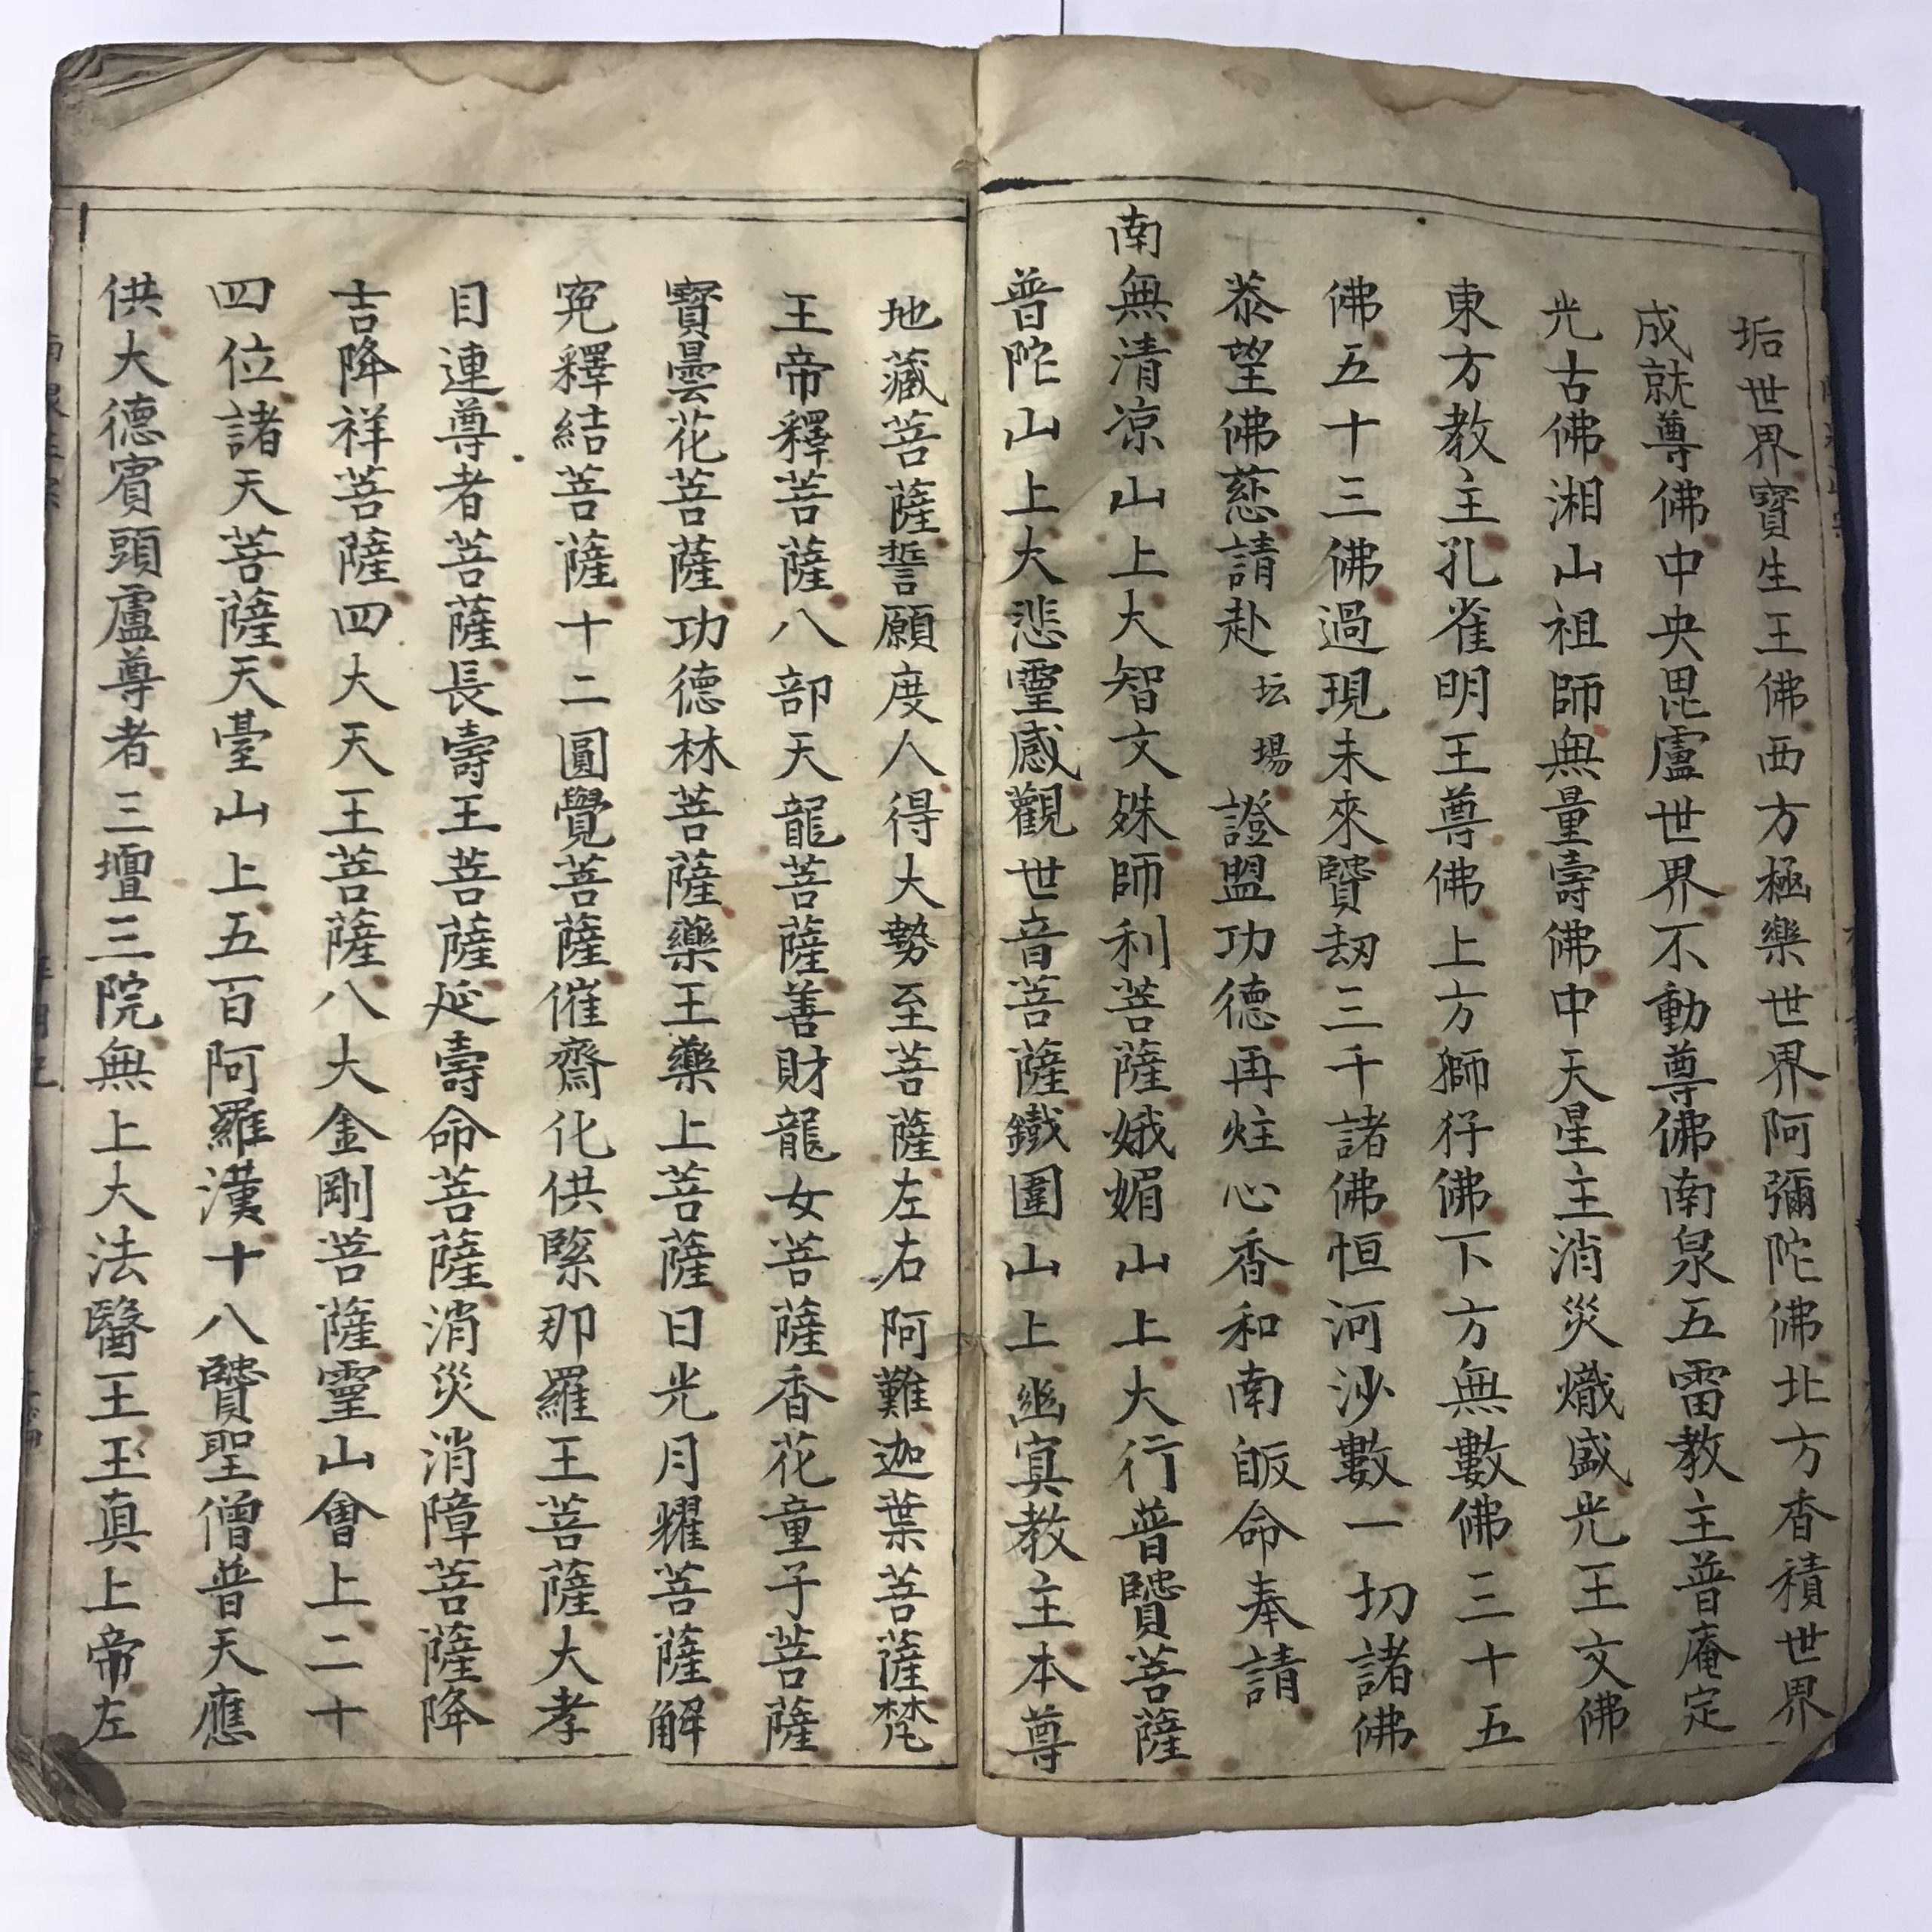 垢世界寶生王佛西方極樂世界阿彌陀佛北方香積世界
成就尊佛中央毘盧世界不動尊佛南泉五雷教主普庵定
光古佛湘山祖師無量壽佛中天星主消災熾盛光王文佛
東方教主孔雀明王尊佛上方獅㺃佛下方無數佛三十五
佛五十三佛過現未來賢刼三千諸佛恒河沙數一切諸佛
叅望佛慈請赴坛場證盟功德再炷心香和南皈命奉請
南無清凉山上大智文殊師利菩薩娥媚山上大行普賢菩薩
普陀山上大悲靈感觀世音菩薩鐵圍山上幽冥教主本尊
地藏菩薩誓願度人得大勢至菩薩左右阿難迦葉菩薩梵
王帝釋菩薩八部天龍菩薩善財龍女菩薩香花童子菩薩
寳曇花菩薩功德林菩薩藥王藥上菩薩日光月耀菩薩解
寃釋結菩薩十二圓覺菩薩催齋化供緊那羅王菩薩大孝
目連尊者菩薩長壽王菩薩延壽命菩薩消災消障菩薩降
吉降祥菩薩四大天王菩薩八大金剛菩薩靈山會上二十
四位諸天菩薩天臺山上五百阿羅漢十八賢聖僧普天應
供大德賓頭盧尊者三壇三院無上大法醫王玉真上帝左